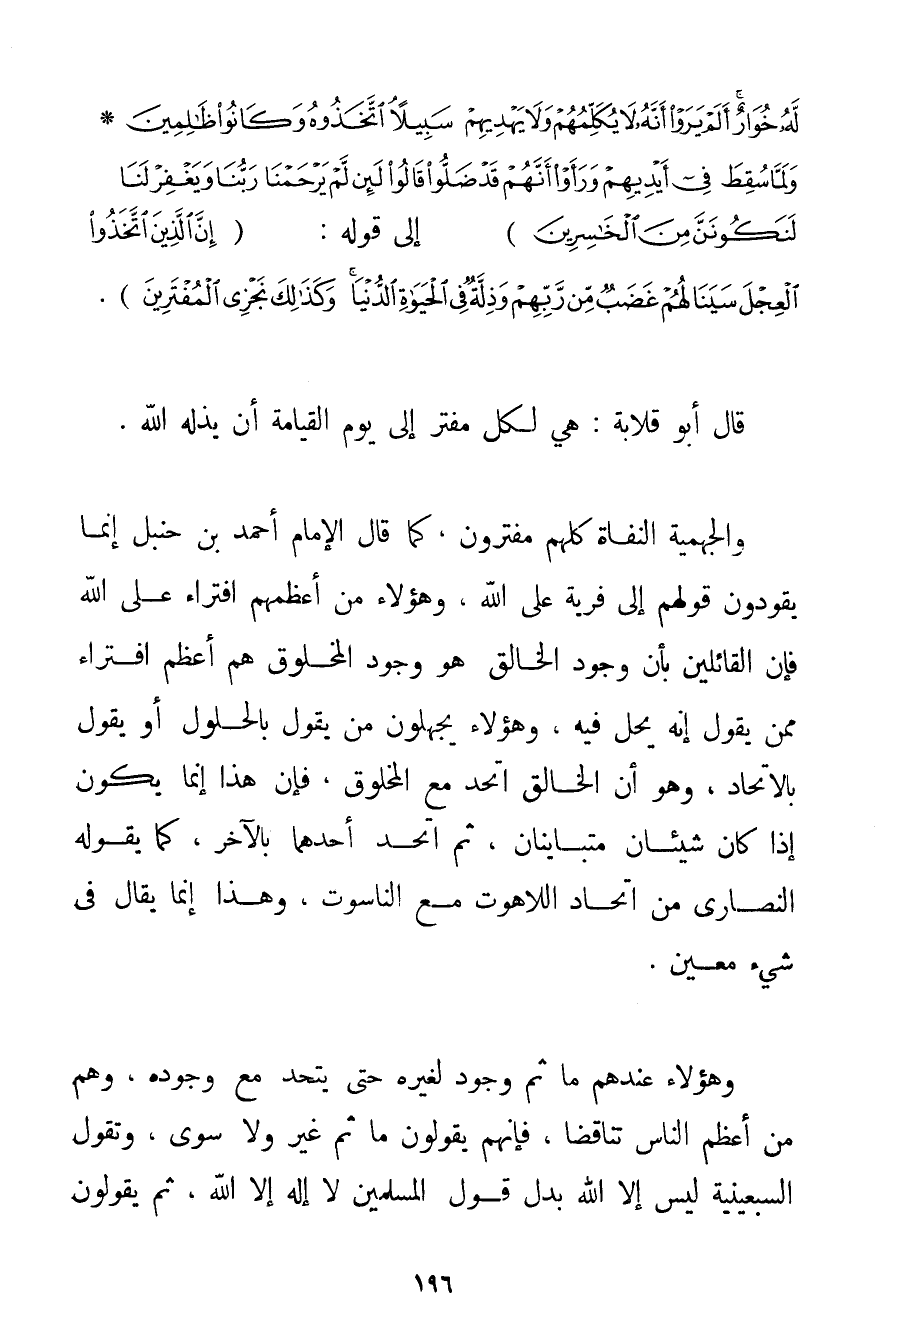 لَّهُۥ خُوَارٌ ۚ أَلَمْ يَرَوْا۟ أَنَّهُۥ لَا يُكَلِّمُهُمْ وَلَا يَهْدِيهِمْ سَبِيلًا ٱتَّخَذُوهُ وَكَانُوا۟ ظَٰلِمِينَ *
وَلَمَّا سُقِطَ فِىٓ أَيْدِيهِمْ وَرَأَوْا۟ أَنَّهُمْ قَدْ ضَلُّوا۟ قَالُوا۟ لَئِن لَّمْ يَرْحَمْنَا رَبُّنَا وَيَغْفِرْ لَنَا
لَنَكُونَنَّ مِنَ ٱلْخَٰسِرِينَ ) إلى قوله : ( إِنَّ ٱلَّذِينَ ٱتَّخَذُوا۟
ٱلْعِجْلَ سَيَنَالُهُمْ غَضَبٌ مِّن رَّبِّهِمْ وَذِلَّةٌ فِى ٱلْحَيَوٰةِ ٱلدُّنْيَا ۚ وَكَذَٰلِكَ نَجْزِى ٱلْمُفْتَرِينَ ) .
قال أبو قلابة : هي لكل مفتر إلى يوم القيامة أن يذله الله .
والجهمية النفاة كلهم مفترون ، كما قال الإمام أحمد بن حنبل إنما
يقودون قولهم إلى فرية على الله ، وهؤلاء من أعظمهم افتراء على الله
فإن القائلين بأن وجود الخالق هو وجود المخلوق هم أعظم افتراء
ممن يقول إنه يحل فيه ، وهؤلاء يجهلون من يقول بالحلول أو يقول
بالاتحاد ، وهو أن الخالق اتحد مع المخلوق ، فإن هذا إنما يكون
إذا كان شيئان متباينان ، ثم اتحد أحدهما بالآخر ، كما يقوله
النصارى من اتحاد اللاهوت مع الناسوت ، وهذا إنما يقال فى
شيء معين .
وهؤلاء عندهم ما ثم وجود لغيره حتى يتحد مع وجوده ، وهم
من أعظم الناس تناقضا ، فإنهم يقولون ما ثم غير ولا سوى ، وتقول
السبعينية ليس إلا الله بدل قول المسلمين لا إله إلا الله ، ثم يقولون
١٩٦